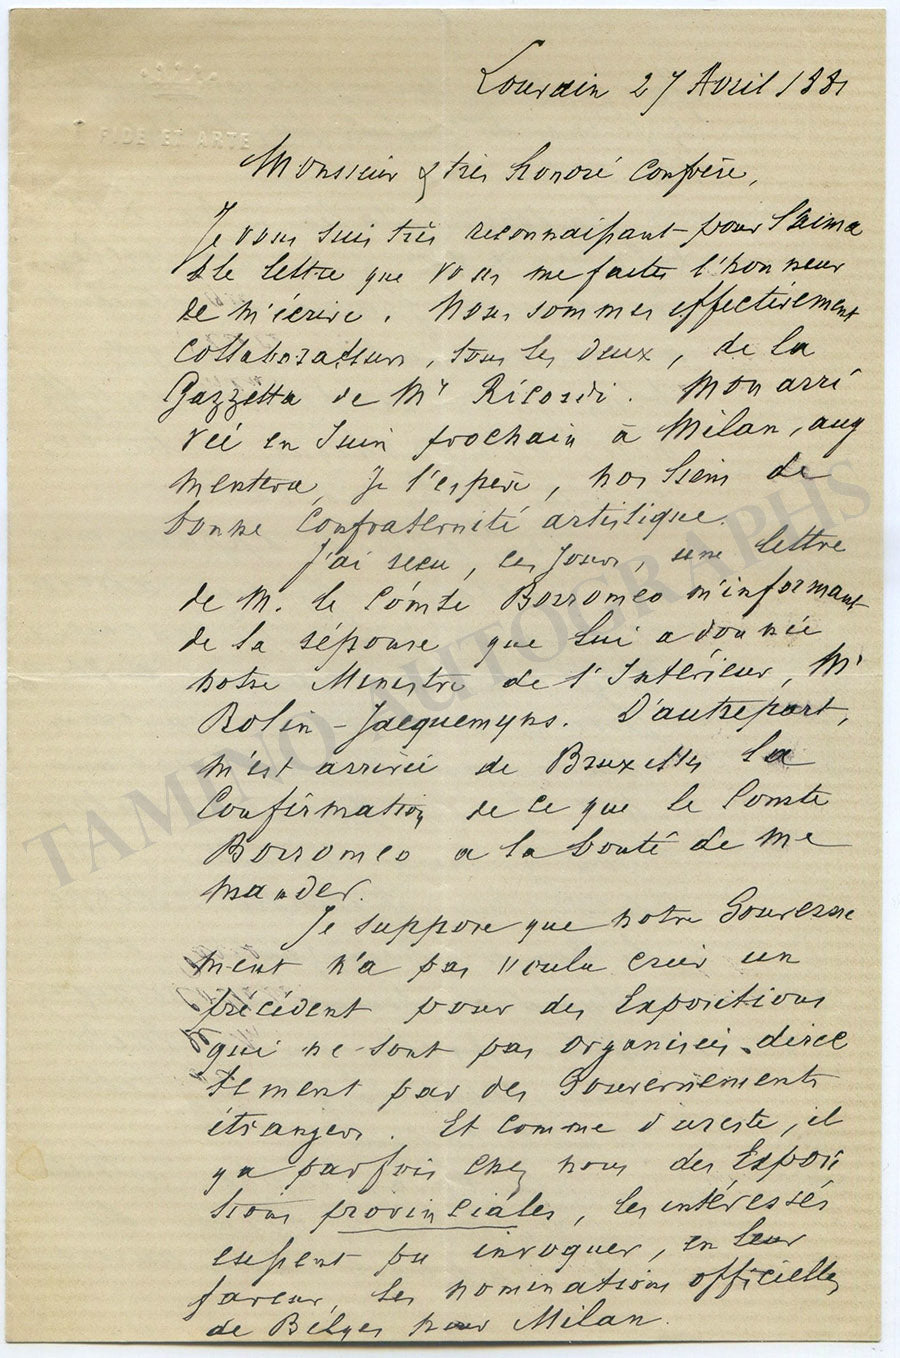 FIDE ET ARTE
Louvain 27 Avril 1881
Monsieur & très honoré Confrère,
Je vous suis très reconnaissant pour l'aima
ble lettre que vous me faites l'honneur
de m'écrire. Nous sommes effectivement
collaborateurs, tous les deux, de la
Gazzetta de Mr Ricordi. Mon arri
vée en Juin prochain à Milan, aug
mentera, je l'espère, nos liens de
bonne confraternité artistique.
J'ai reçu, ces jours, une lettre
de M. le Comte Borromeo m'informant
de la réponse que lui a donnée
notre Ministre de l'Intérieur, Mr
Rolin-Jaequemyns. D'autrepart,
m'est arrivée de Bruxelles la
Confirmation de ce que le Comte
Borromeo a la bonté de me
mander.
Je suppose que notre Gouverne
ment n'a pas voulu créer un
précédent pour des Expositions
qui ne sont pas organisées direc
tement par des Gouvernements
étrangers. Et comme dureste, il
ya parfois chez nous des Exposi
tions provinciales, les intéressés
eussent pu invoquer, en leur
faveur, les nominations officielles
de Belges pour Milan.
TAMINO AUTOGRAPHS